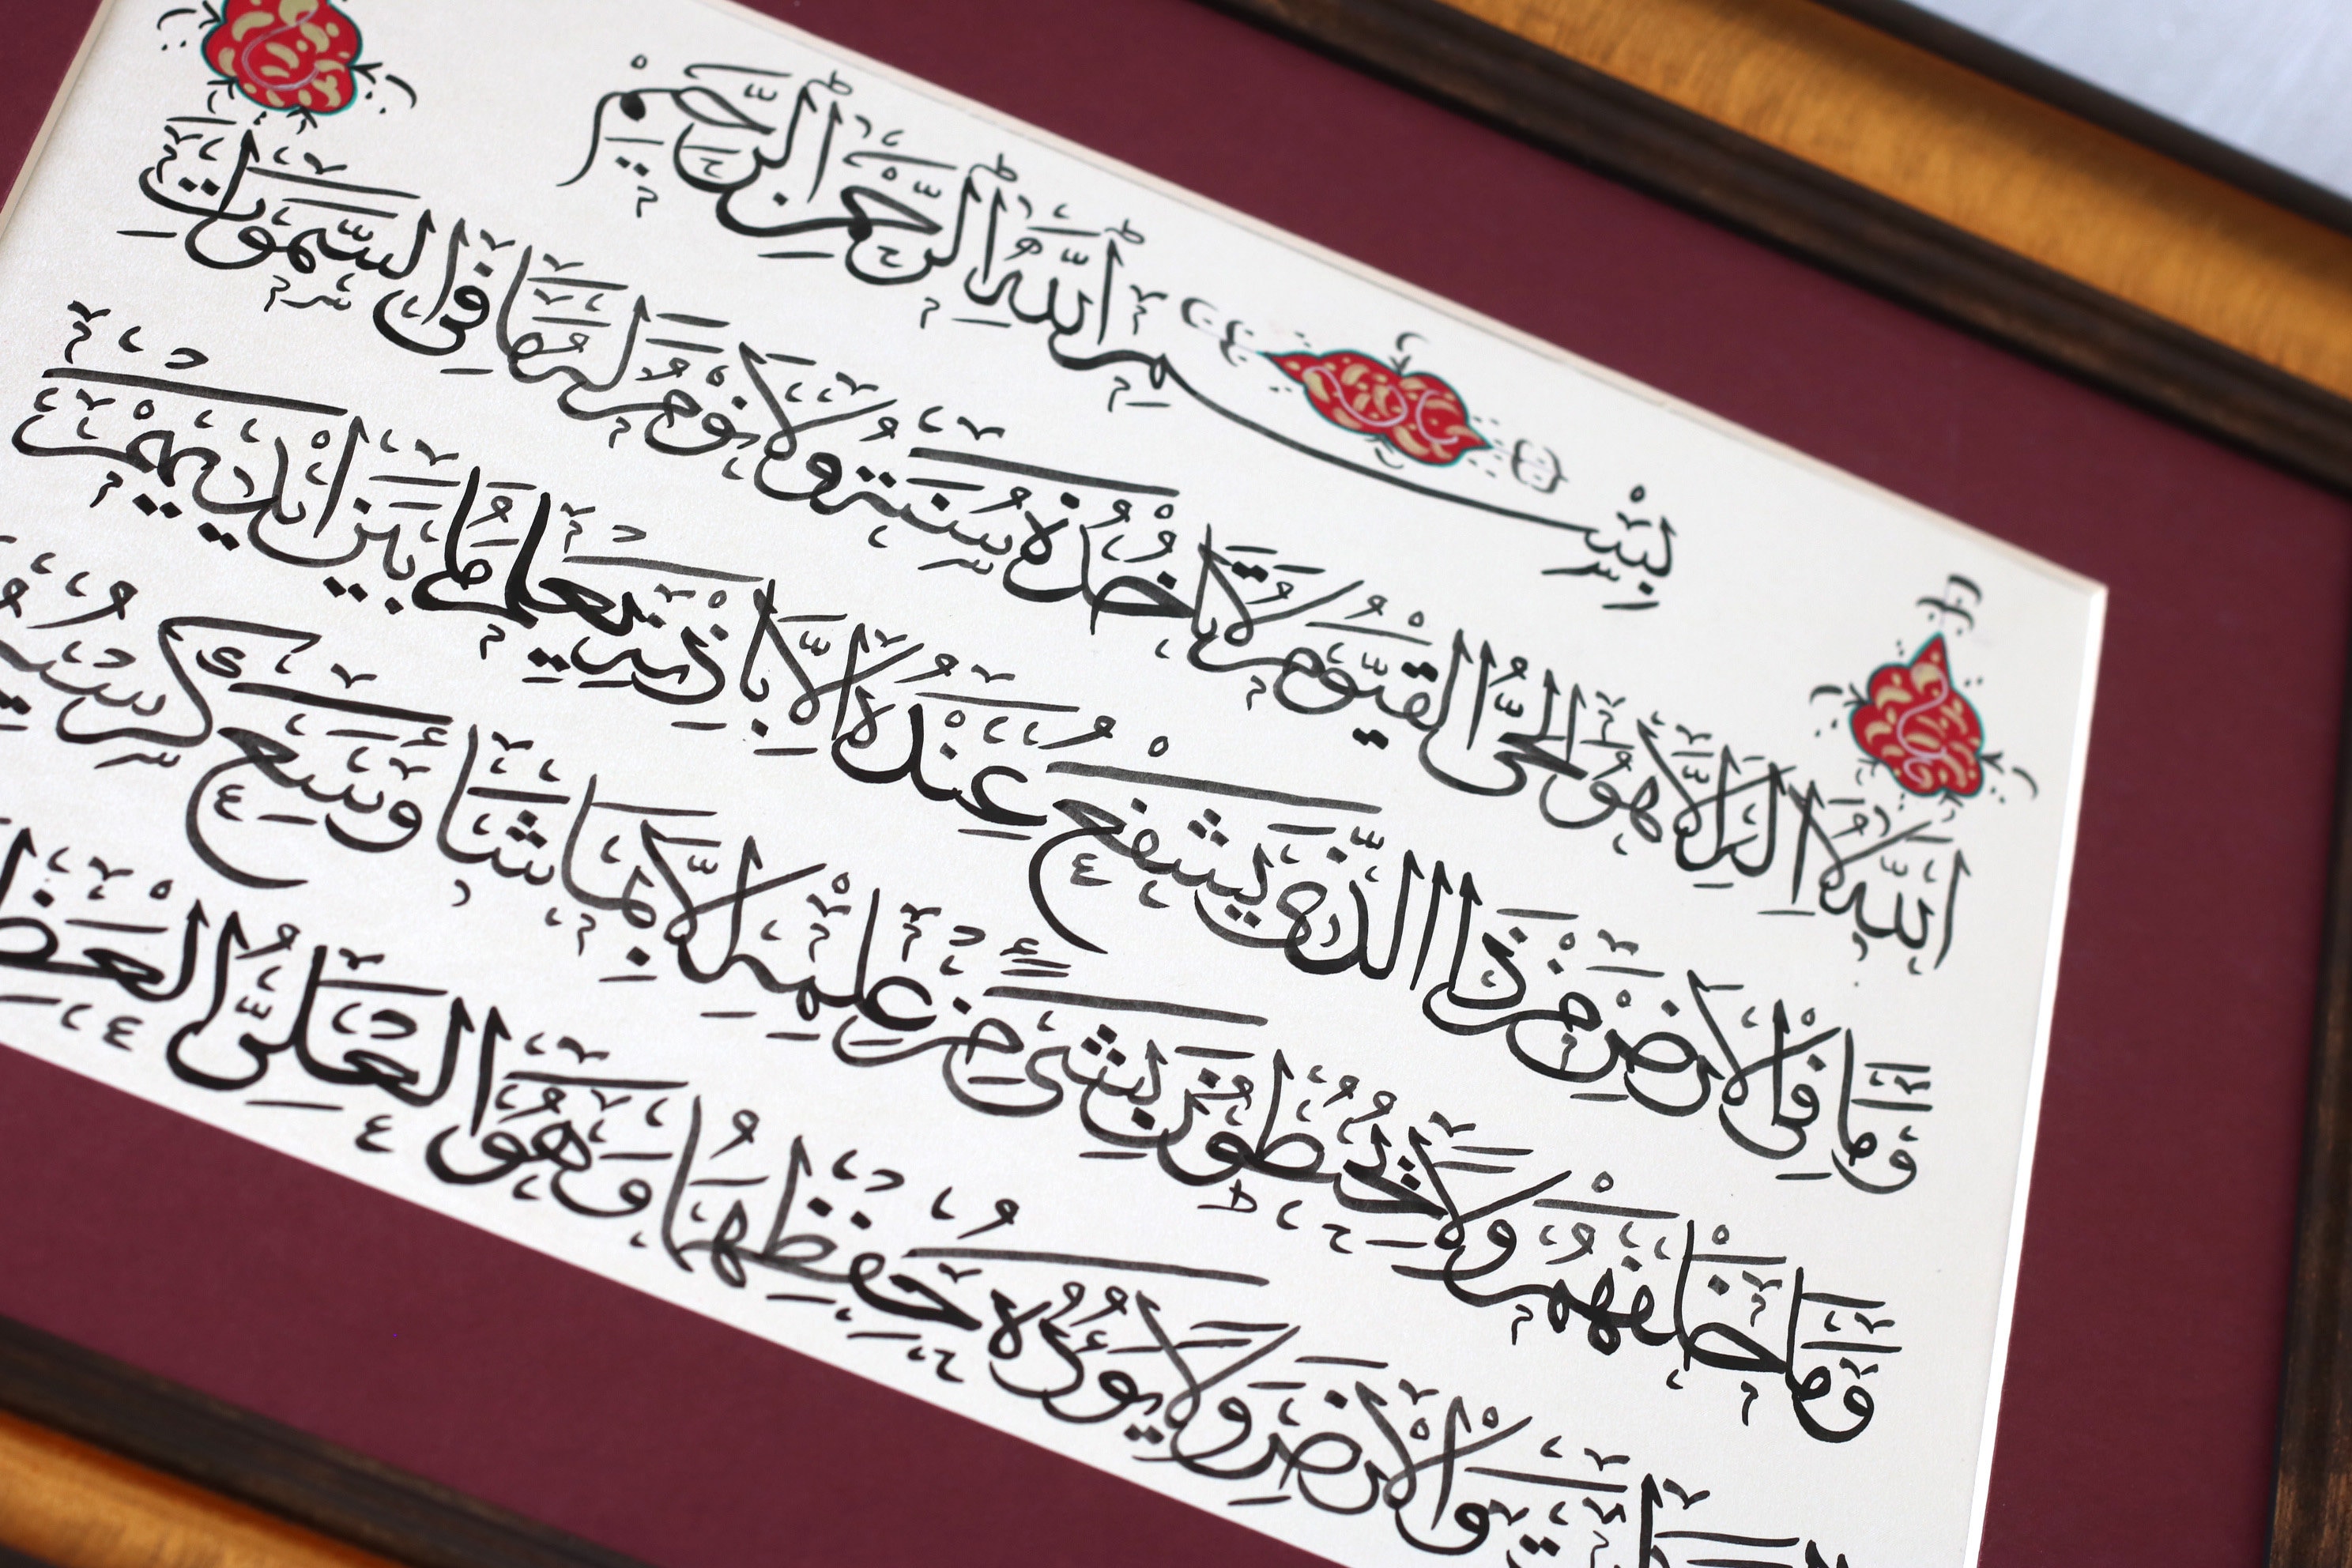 بِسْمِ اللَّهِ الرَّحْمٰنِ الرَّحِيمِ
اَللّٰهُ لَا اِلٰهَ اِلَّا هُوَ الْحَىُّ الْقَيُّومُ لَا تَاْخُذُهُ سِنَةٌ وَلَا نَوْمٌ لَهُ مَا فِى السَّمٰوَاتِ
وَمَا فِى الْاَرْضِ مَنْ ذَا الَّذِى يَشْفَعُ عِنْدَهُ اِلَّا بِاِذْنِهِ يَعْلَمُ مَا بَيْنَ اَيْدِيهِمْ
وَمَا خَلْفَهُمْ وَلَا يُحِيطُونَ بِشَىْءٍ مِنْ عِلْمِهِ اِلَّا بِمَا شَاءَ وَسِعَ كُرْسِيُّهُ
وَالْاَرْضَ وَلَا يَؤُدُهُ حِفْظُهُمَا وَهُوَ الْعَلِىُّ